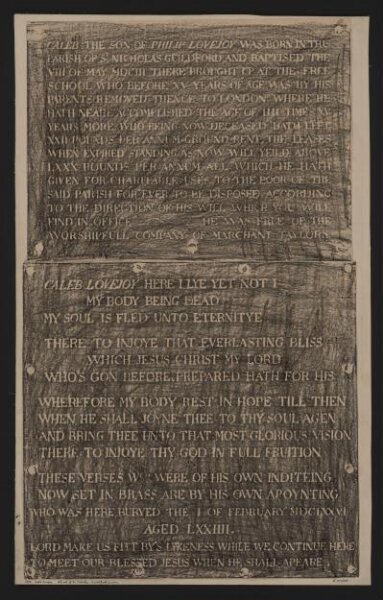 CALEB THE SON OF PHILIP LOVEIOY WAS BORN IN THIS
PARISH OF St NICHOLAS GUILDFORD AND BAPTISED THE
VIII OF MAY MDCIII THERE BROUGHT UP AT THE FREE
SCHOOL WHO BEFORE XV YEARS OF AGE WAS BY HIS
PARENTS REMOVED THENCE TO LONDON WHERE HE
HATH NEARE ACCOMPLISHED THE AGE OF
YEARS MORE WHO BEING NOW DECEASED HATH LEFT
XXII POUNDS PER ANNUM GROUND RENT THE LEASES
WHEN EXPIRED STANDING AS NOW WILL YEILD ABOVE
LXXX POUNDS PER ANNUM ALL WHICH HE HATH
GIVEN FOR CHARITABLE USES TO THE POOR OF THE
SAID PARISH FOR EVER TO BE DISPOSED ACCORDING
TO THE DIRECTION OF HIS WILL WHICH YOU WILL
FIND IN OFFICE HE WAS FREE OF THE
WORSHIPFULL COMPANY OF MARCHANT TAYLORS
CALEB LOVEJOY HERE I LYE YET NOT I
MY BODY BEING DEAD
MY SOUL IS FLED UNTO ETERNITYE
THERE TO INJOYE THAT EVERLASTING BLISS
WHICH JESUS CHRIST MY LORD
WHO'S GON BEFORE, PREPARED HATH FOR HIS
WHEREFORE MY BODY REST IN HOPE TILL THEN
WHEN HE SHALL JOYNE THEE TO THY SOUL AGEN
AND BRING THEE UNTO THAT MOST GLORIOUS VISION
THERE TO INJOYE THY GOD IN FULL FRUITION
THESE VERSES WCH WERE OF HIS OWN INDITEING
NOW SET IN BRASS ARE BY HIS OWN APOYNTING
WHO WAS HERE BURYED THE I OF FEBRUARY MDCLXXVI
AGED LXXIIII.
LORD MAKE US FITT BY'S LYKENESS WHILE WE CONTINUE HERE
TO MEET OUR BLESSED JESUS WHEN HE SHALL APEARE